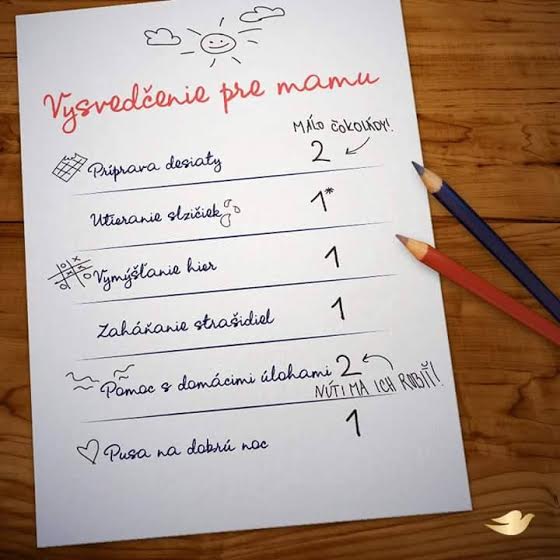 Vysvedčenie pre mamu
MÁLO ČOKOLÁDY!
Príprava desiaty 2
Utieranie slzičiek 1*
Vymýšľanie hier 1
Zaháňanie strašidiel 1
Pomoc s domácimi úlohami 2
NÚTI MA ICH ROBIŤ!
Pusa na dobrú noc 1